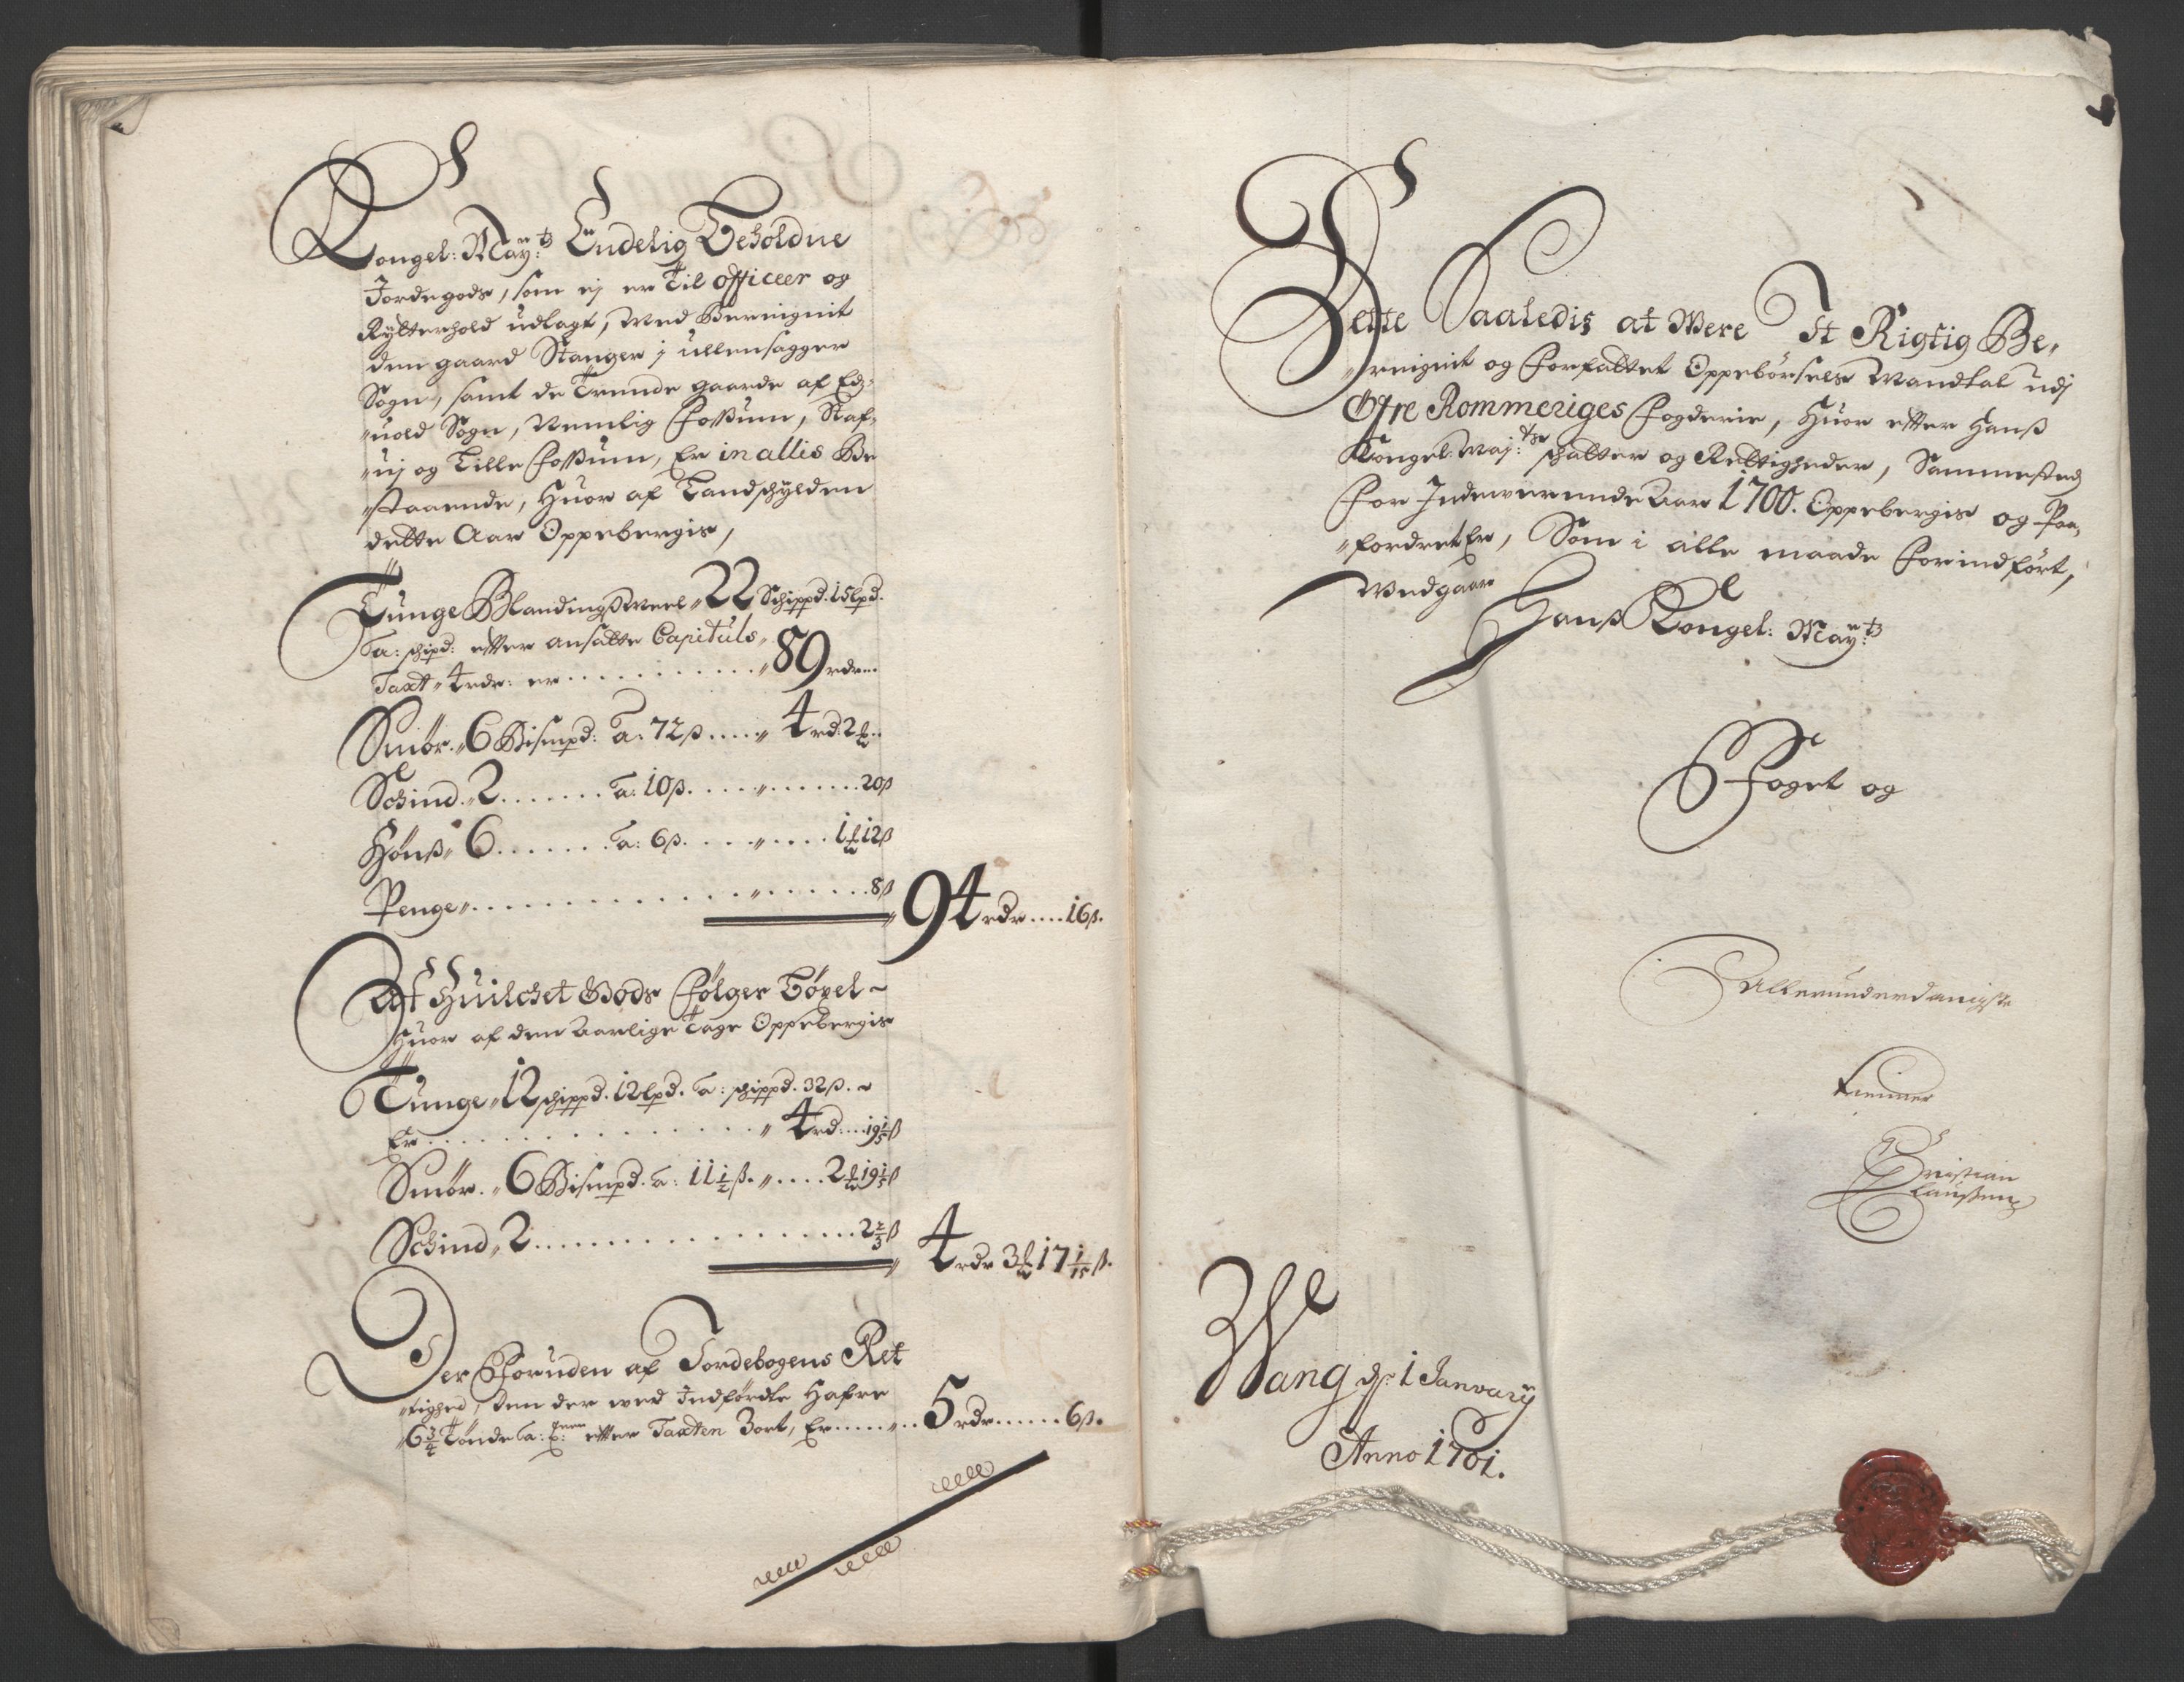 Kongel: May:ts Endelig Beholdne
Jordegods, som ej er Til officeer og
Rytterhold udlagt, med Beregnit
den gaard Stanger i ullensagger
Sogn, samt de Trende gaarde af Eds-
"uold Sogn, Nemlig Fossum, Staf-
"uj og Lille Fossum, Er in allis Be
"staaende, Huor af Landschylden
dette Aar Oppebergis,
Tunge Blandings Meel "22 Schippd. 15 lpd.
a: schipd: efter ansatte Capituls
Taxt "4 rdr: er . . . . . . . . . . . "89 rdr...
Smør. "6 Bismpd: a: 72 ß..... " 4 rd: 2 ℔..
Schind. "2....... a: 10 ß. . . . . " . . . . . . . 20 ß
Hønß "6....... a: 6 ß. . . . . " . . . . 1 ℔ 12 ß
Penge ". . . . . . . . . . . . . . " . . . . . . . 8 ß
"94 rdr .... 16 ß.
Af Huilchet Gods Følger Bøxel ~
Huor af den Aarlige Tage Oppebergis
Tunge "12 schippd. 12 lpd. a: schippd. 32 ß. ~
Er . . . . . . . . . . . . . . . . " 4 rd: ... 19 1/5 ß
Smør. "6 Bismpd. a: 11 1/2 ß. " .... 2 ℔ 19 1/5 ß
Schind "2. . . . . . . . . . . . . . . . . . . 2 2/3 ß
" 4 rdr 3 ℔ 17 1/15 ß.
Der Foruden af Jordebogens Ret
"tighed, den der wed Indførdte Hafre
"6 3/4 Tønde a: efter Taxten 3 ort, Er ..... " .. 5 rdr ...... 6 ß.
Dette Saaledis at Were It Rigtig Be,
"reignit og Forfattet Oppebørsels Mandtal udj
Øfre Rommeriges Fogderie, Huor efter Hanß
Kongel: Maj:ts schatter og Rettigheder, Sammested
For Indewerende Aar 1700. Oppebergis og Paa,
"fordret Er, Som i alle maade Forindført,
Wedgaar
Hanß Kongel: May:ts
Foget og
Allerunderdanigste
tienner
Christian
Claußen
Wang d: 1 January
Anno 1701.